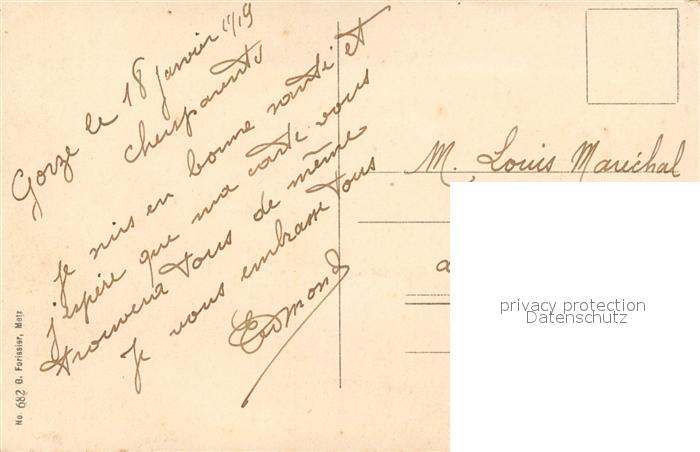 Gorze le 18 janvier 1919
chers parents
je suis en bonne santé et
j'espère que ma carte vous
trouvera tous de même
Je vous embrasse tous
Edmond
M. Louis Maréchal
a
privacy protection
Datenschutz
No. 682 B. Forissier, Metz